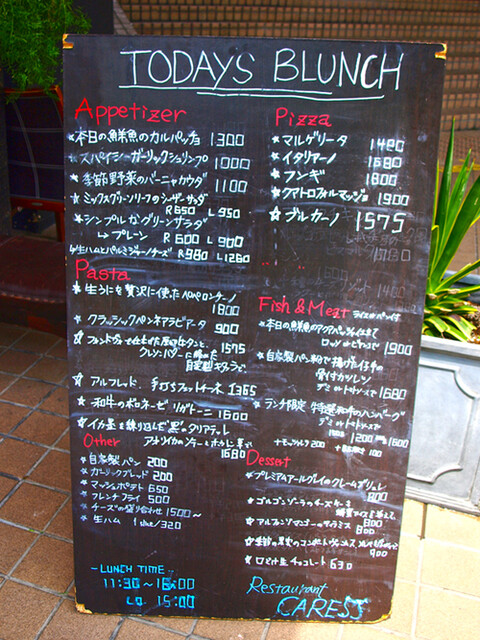 TODAYS BLUNCH
Appetizer
★本日の鮮魚のカルパッチョ 1300
★スパイシーガーリックシュリンプ 1000
★季節野菜のバーニャカウダ 1100
★ミックスグリーンリーフのシーザーサラダ
R 650 L 950
★シンプルなグリーンサラダ
↳プレーン R 600 L 900
↳生ハムとパルミジャーノチーズ R 980 L 1260
Pasta
★生うにを贅沢に使ったペペロンチーノ
1800
★クラシックペンネアラビアータ 900
1575
★アルフレッド 手打ちフェットチーネ 1365
★和牛のボロネーゼ リガトーニ 1600
★イカ墨を練り込んだ"黒"タリアテッレ
1680
Other
★自家製パン 200
★ガーリックブレッド 200
★マッシュポテト 650
★フレンチフライ 500
★チーズの盛り合わせ 1500〜
★生ハム 1 slice/320
- LUNCH TIME -
11:30〜16:00
L.O. 15:00
Pizza
★マルゲリータ 1480
★イタリアーノ 1680
★フンギ 1800
★クアトロフォルマッジョ 1900
★ブルカーノ 1575
Fish & Meat ライス or パン付
★本日の鮮魚のアクアパッツァ
1900
★自家製パン粉で揚げた
骨付カツレツ
1680
★ランチ限定 特選和牛のハンバーグ
1200 1600
Dessert
★プレミアムアールグレイのクレームブリュレ
800
★ゴルゴンゾーラのチーズケーキ
800
★アルフォンソマンゴーのティラミス 800
900
★口どけ生チョコレート 630
Restaurant
CARESS